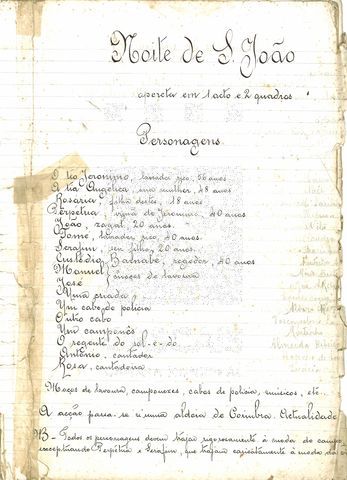 Noite de S. João
opereta em 1 acto e 2 quadros
Personagens
O tio Jeronimo, lavrador rico, 56 anos
A tia Angelica, sua mulher, 48 anos
Rosaria, filha destes, 18 anos
Perpétua, irmã de Jeronimo, 40 anos
João, zagal, 20 anos.
Tomé, lavrador rico, 40 anos.
Serafim, seu filho, 20 anos.
Custódio Barnabé, regedor, 40 anos
Manuel } moços de lavoura
José
Uma criada
Um cabo de policia
Outro cabo
Um camponês
O regente do sol-e-dó
António, cantador
Rosa, cantadeira
Moços de lavoura, camponezes, cabos de policia, musicos, etc..
A acção passa-se n'uma aldeia de Coimbra. Actualidade
NB - Todos os personagens devem trajar rigorosamente à moda do campo,
exceptuando Perpétua e Serafim, que trajam à moda da